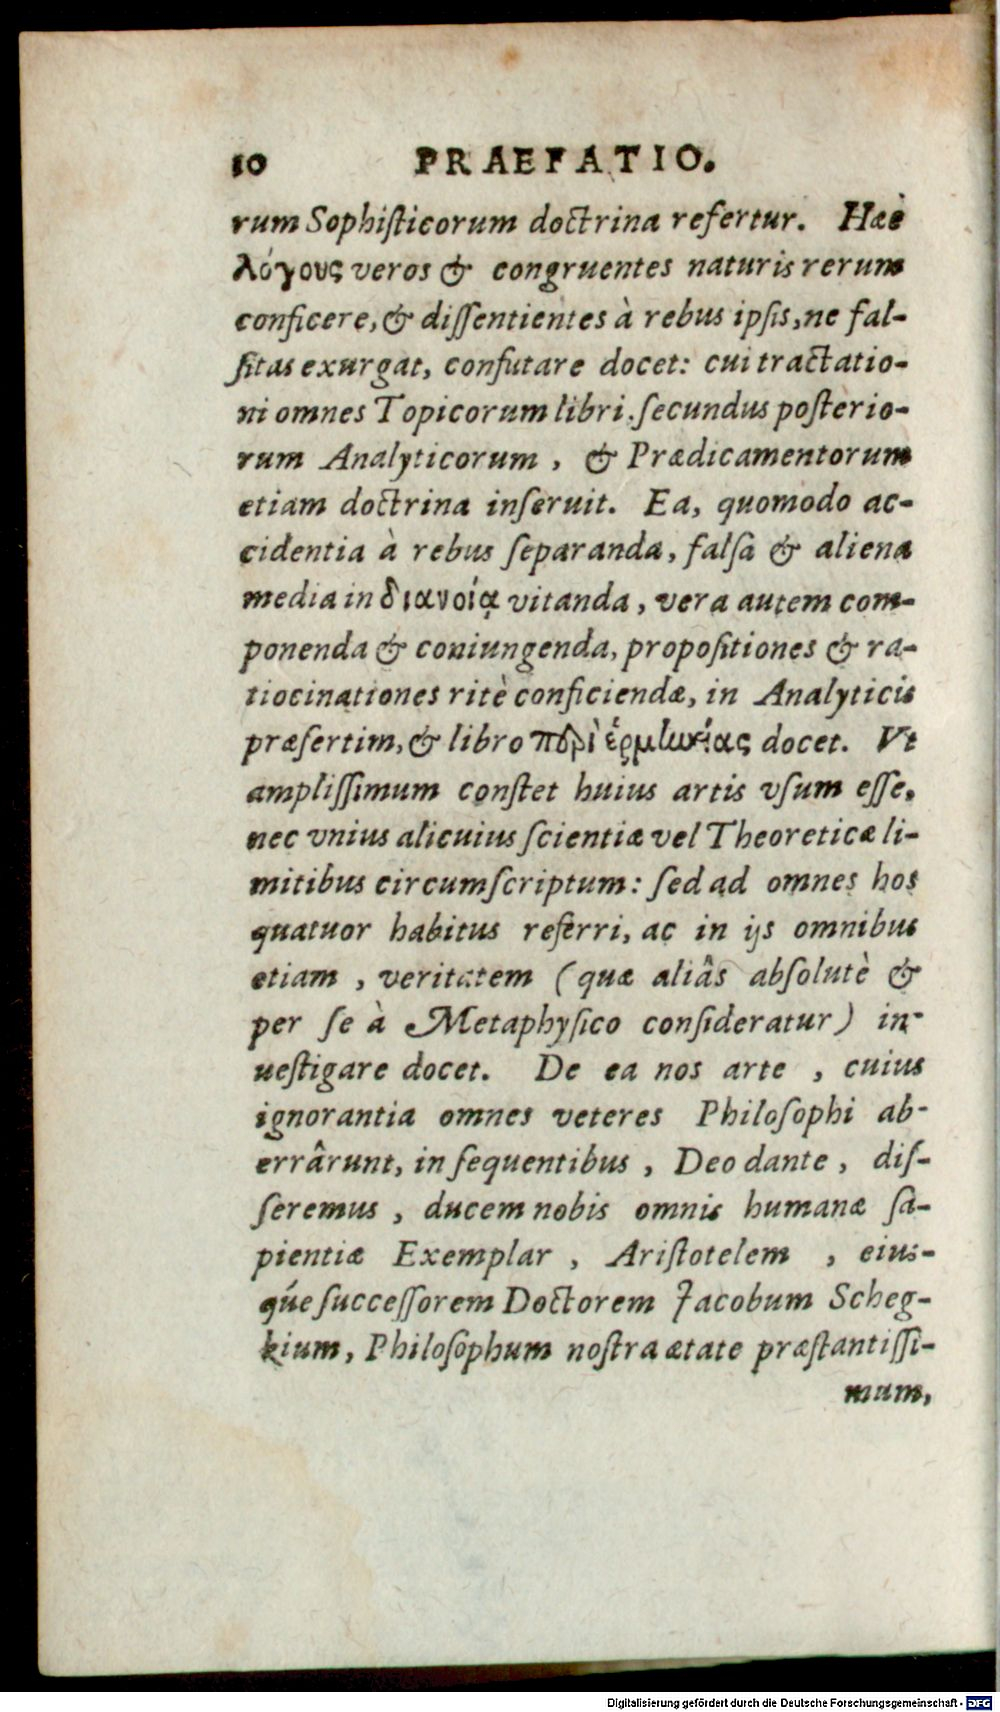 10 PRAEFATIO.
rum Sophiſticorum doctrina refertur. Hæc
λόγους veros & congruentes naturis rerum
conficere, & diſſentientes à rebus ipſis, ne fal-
ſitas exurgat, confutare docet: cui tractatio-
ni omnes Topicorum libri. ſecundus poſterio-
rum Analyticorum, & Prædicamentorum
etiam doctrina inſeruit. Ea, quomodo ac-
cidentia à rebus ſeparanda, falſa & aliena
media in διανοίᾳ vitanda, vera autem com-
ponenda & coniungenda, propoſitiones & ra-
tiocinationes ritè conficiendæ, in Analyticis
præſertim, & libro περὶ ἑρμηνείας docet. Vt
ampliſſimum conſtet huius artis vſum eſſe,
nec vnius alicuius ſcientiæ vel Theoreticæ li-
mitibus circumſcriptum: ſed ad omnes hos
quatuor habitus referri, ac in ijs omnibus
etiam, veritatem (quæ aliâs abſolutè &
per ſe à Metaphyſico conſideratur) in-
ueſtigare docet. De ea nos arte, cuius
ignorantia omnes veteres Philoſophi ab-
errârunt, in ſequentibus, Deo dante, diſ-
ſeremus, ducem nobis omnis humanæ ſa-
pientiæ Exemplar, Ariſtotelem, eius-
q́ue ſucceſſorem Doctorem Jacobum Scheg-
kium, Philoſophum noſtra ætate præſtantiſſi-
mum,
Digitalisierung gefördert durch die Deutsche Forschungsgemeinschaft - DFG